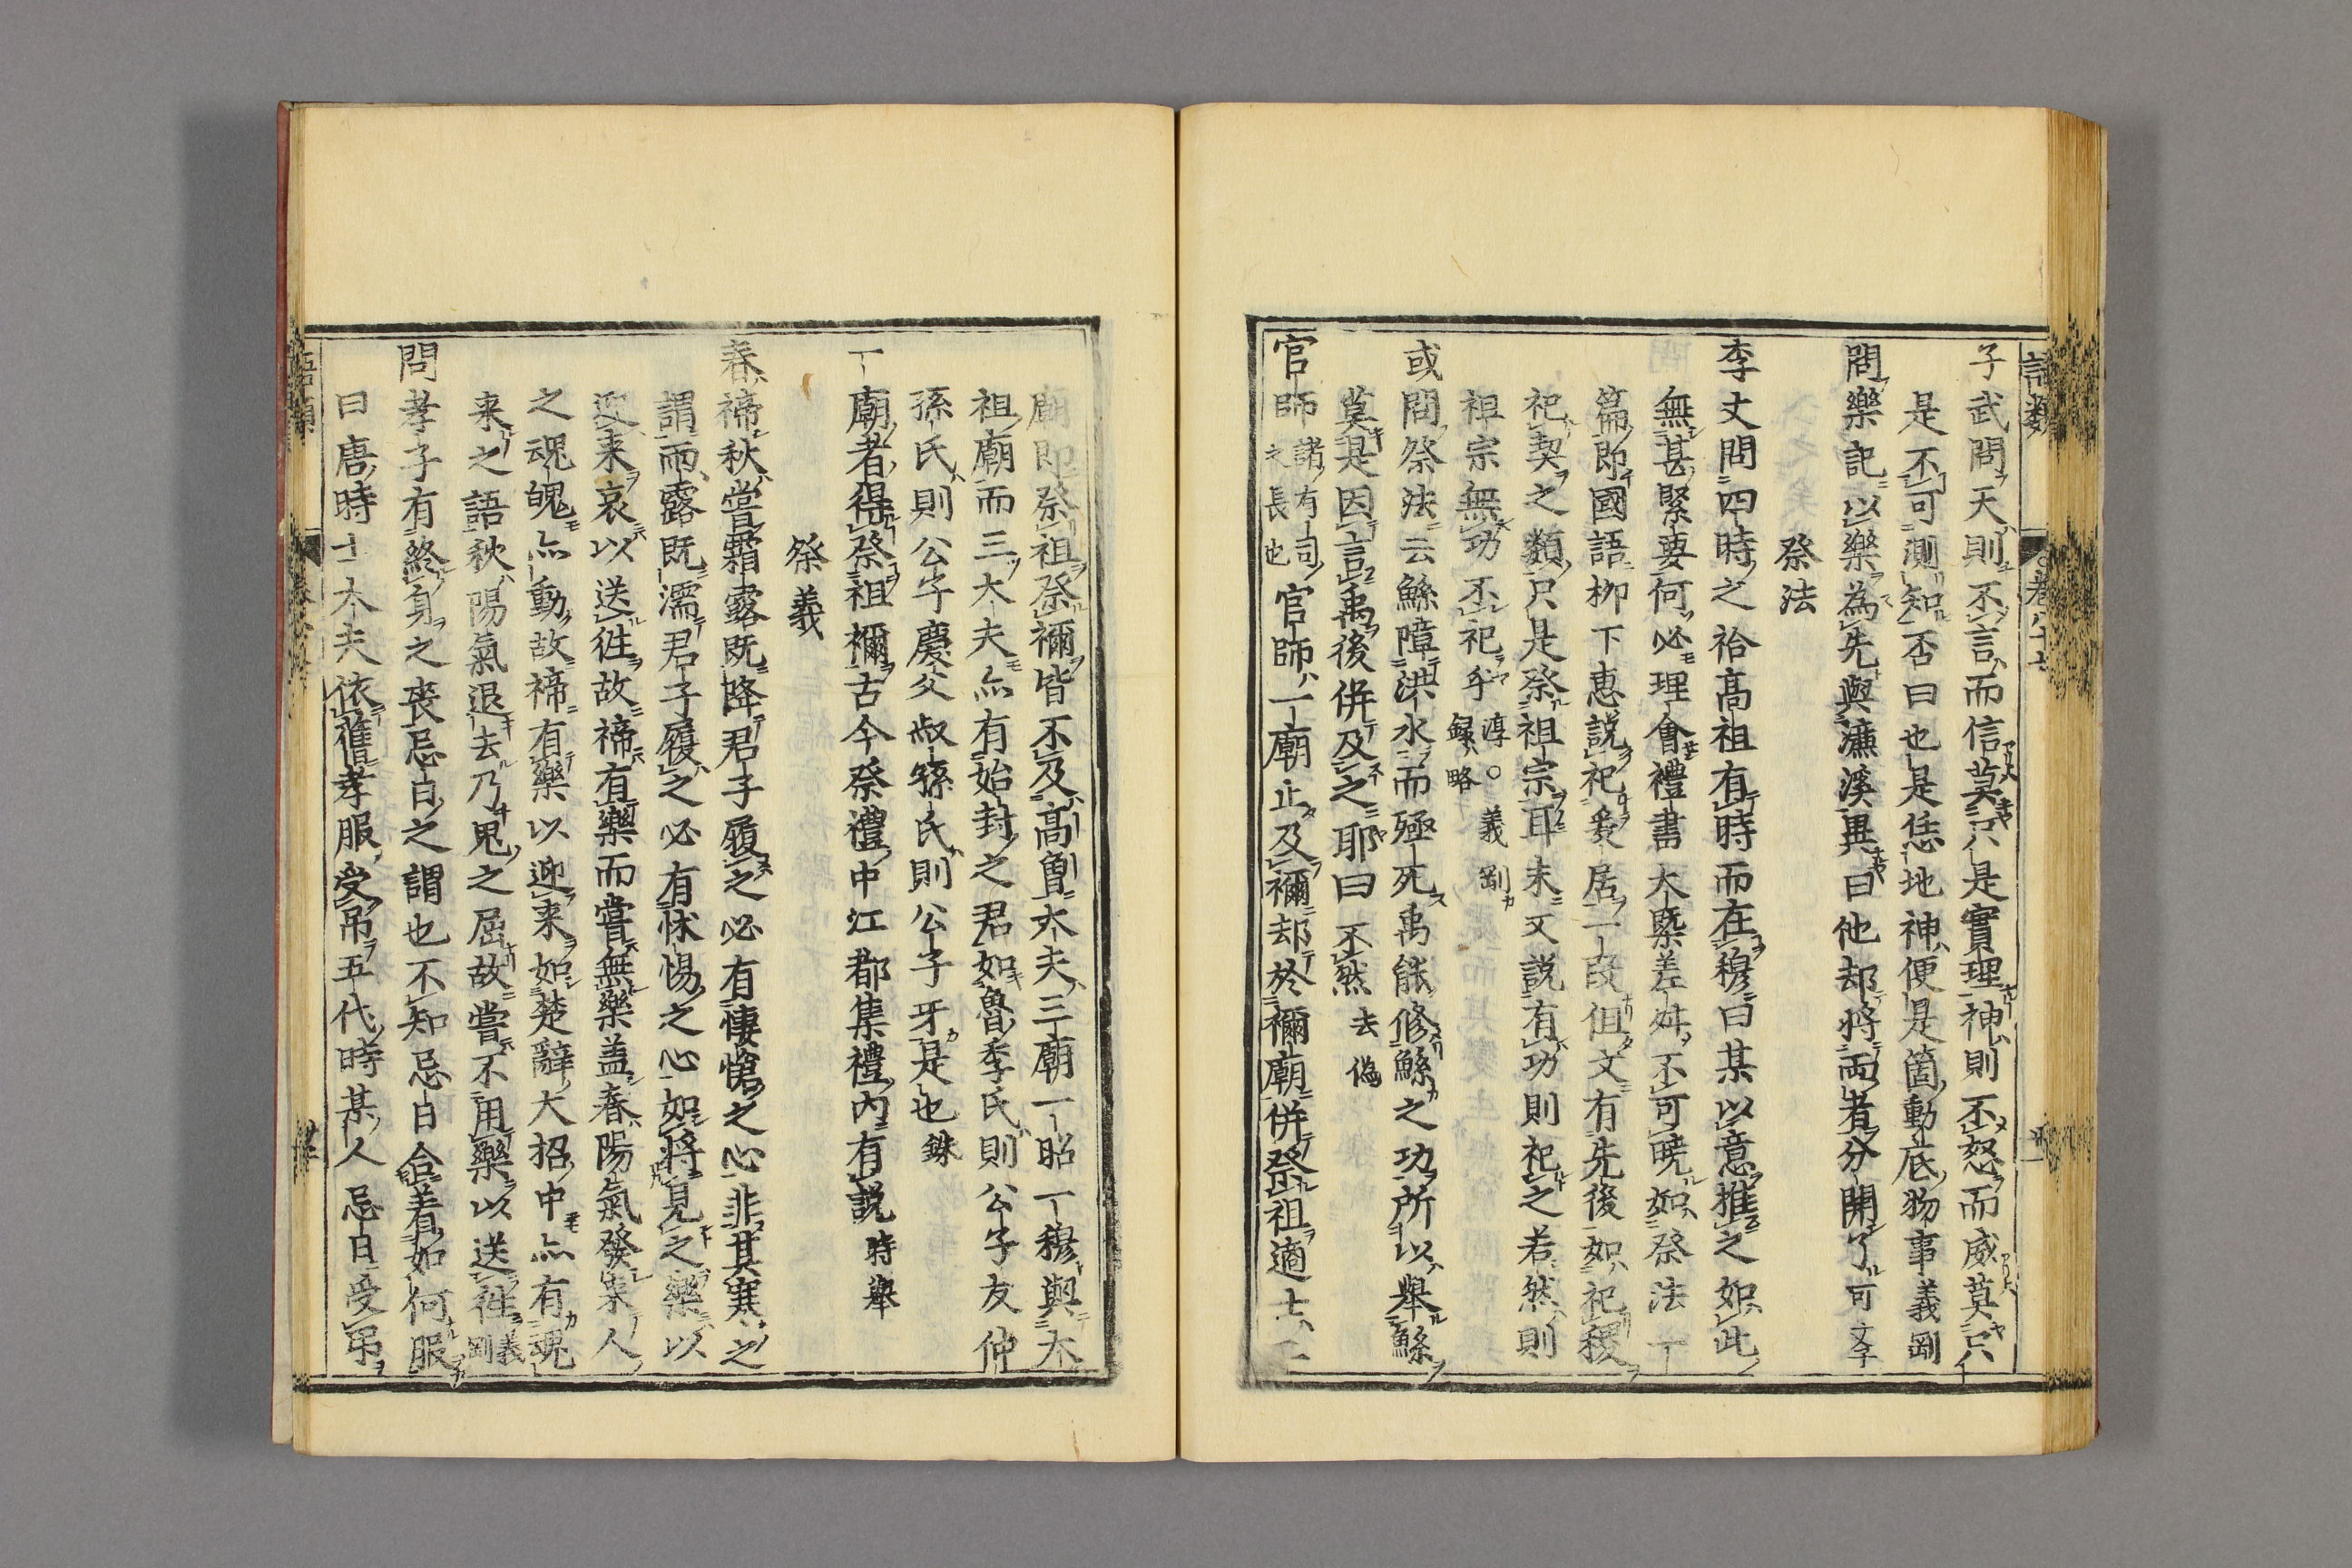 語類
卷八十七
子武問天則不言而信莫只是實理神則不怒而威莫只
是不可測知否曰也是恁地神便是箇動底物事義剛
問樂記以樂為先與濂溪異曰他却將兩者分開了可文孚
祭法
李丈問四時之祫高祖有時而在穆曰某以意推之如此
無甚緊要何必理會禮書大槩差舛不可曉如祭法一
篇即國語柳下惠說祀爰居一段但文有先後如祀稷
祀契之類只是祭祖宗耳末又說有功則祀之若然則
祖宗無功不祀乎淳○義剛錄略
或問祭法云鯀障洪水而殛死禹能修鯀之功所以舉鯀
莫是因言禹後併及之耶曰不然去偽
官師諸有司之長也官師一廟止及禰却於禰廟併祭祖適士二
廟即祭祖祭禰皆不及高曾大夫三廟一昭一穆與太
祖廟而三大夫亦有始封之君如魯季氏則公子友仲
孫氏則公子慶父叔孫氏則公子牙是也銖
一廟者得祭祖禰古今祭禮中江都集禮內有說時舉
祭義
春禘秋嘗霜露既降君子履之必有悽愴之心非其寒之
謂而露既濡君子履之必有怵惕之心如將見之樂以
迎来哀以送往故禘有樂而嘗無樂盖春陽氣發来人
之魂魄亦動故禘有樂以迎来如楚辭大招中亦有魂
来之語秋陽氣退去乃鬼之屈故嘗不用樂以送往義剛
問孝子有終身之喪忌日之謂也不知忌日合着如何服
曰唐時士大夫依舊孝服受吊五代時某人忌日受吊